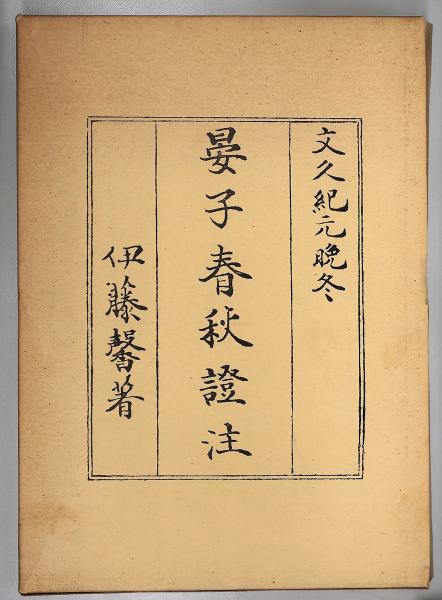 文久紀元晩冬
晏子春秋證注
伊藤馨著